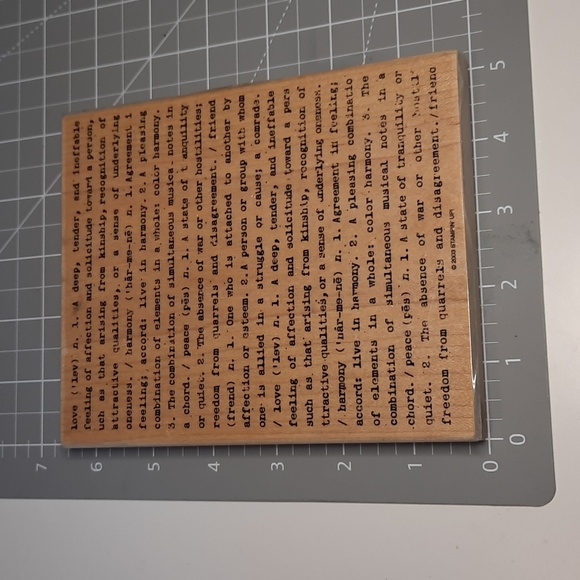 love ('ləv) n. 1. A deep, tender, and ineffable
feeling of affection and solicitude toward a person,
uch as that arising from kinship, recognition of
attractive qualities, or a sense of underlying
oneness. / harmony ('här-me-nē) n. 1. Agreement i
feeling; accord: live in harmony. 2. A pleasing
combination of elements in a whole: color harmony.
3. The combination of simultaneous musica notes in
a chord. / peace (pēs) n. 1. A state of t anquility
or quiet. 2. The absence of war or other hostilities;
reedom from quarrels and disagreement. / friend
(frend) n. 1. One who is attached to another by
affection or esteem. 2. A person or group with whom
one is allied in a struggle or cause; a comrade.
/ love ('ləv) n. 1. A deep, tender, and ineffable
feeling of affection and solicitude toward a pers
such as that arising from kinship, recognition of
ttractive qualities, or a sense of underlying oneness.
/ harmony ('här-me-nē) n. 1. Agreement in feeling;
accord: live in harmony. 2. A pleasing combinatio
of elements in a whole: color harmony. 3. The
combination of simultaneous musical notes in a
chord. / peace (pēs) n. 1. A state of tranquility or
quiet. 2. The absence of war or other
freedom from quarrels and disagreement. / friend
© 2003 STAMPIN' UP!
7 6 5 4 3 2 1 0
0 1 2 3 4 5